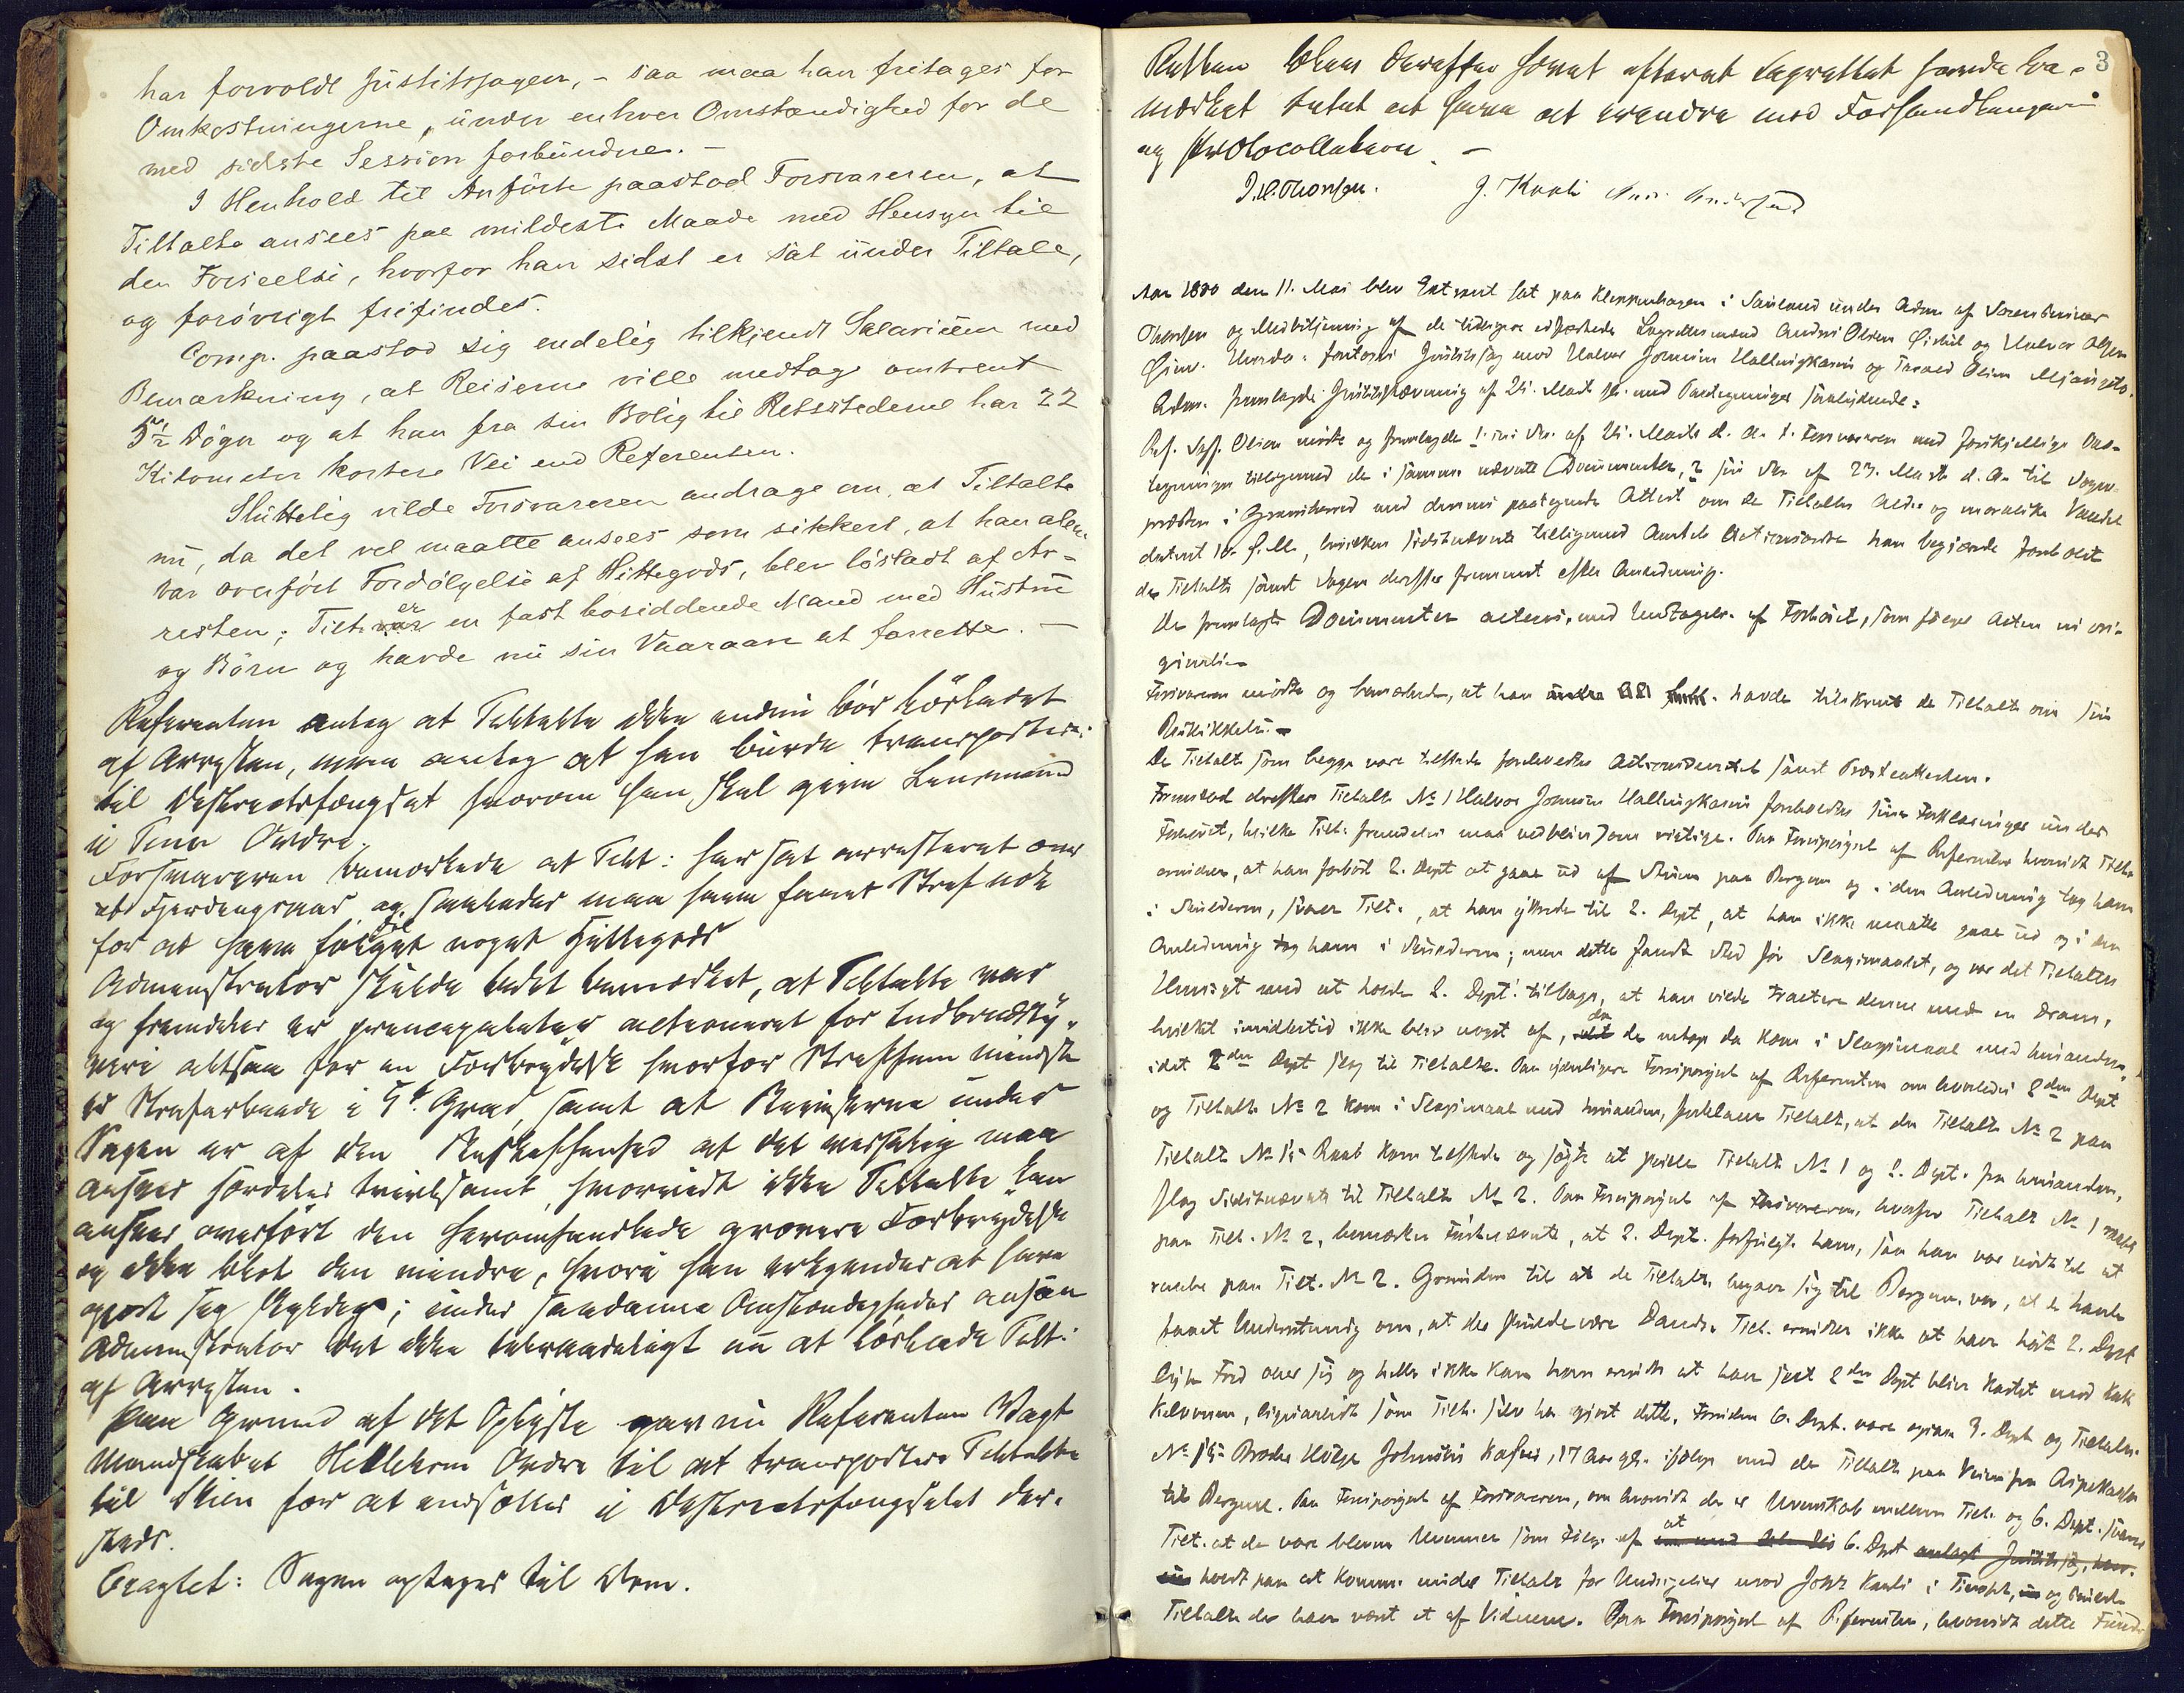 har forvoldt Justitssagen, - saa maa han fritages for
Omkostningerne, under enhver Omstændighed for de
med sidste Session forbundne. -
I Henhold til Anførte paastod Forsvareren, at
Tiltalte ansees paa mildeste Maade med Hensyn til
den Forseelse, hvorfor han sidst er sat under Tiltale,
og forøvrigt frifindes.
Comp. paastod sig endelig tilkjendt Salarium med
Bemærkning, at Reiserne ville medtage omtrent
5½ Døgn og at han fra sin Bolig til Retsstederne har 22
Kilometer kortere Vei end Referenten.
Sluttelig vilde Forsvareren andrage om, at Tiltalte
nu, da det vel maatte ansees som sikkert, at han alene
var overført Fordølgelse af Hittegods, blev løsladt af Ar-
resten; Tilt. er en fast bosiddende Mand med Hustru
og Børn og havde nu sin Vaaraan at forrette. -
Referenten antog at Tiltalte ikke endnu bør løslades
af Arresten, men antog at han burde transporteres
til Distriktsfængslet hvorom han skal give Lensmand
Ordre.
Forsvareren bemærkede at Tilt: har sat arresteret over
et Fjerdingaar og saaledes maa have faaet Straf nok
for at have fulgt noget Hittegods
Administrator skulde ladet bemærket, at Tiltalte var
og fremdeles er principaliter actioneret for Indbrudsty-
veri altsaa for en Forbrydelse hvorfor Straffen mindst
er Strafarbeide i 5te Grad, samt at Beviserne under
Sagen er af den Beskaffenhed at det væsentlig maa
ansees særdeles tvivlsomt, hvorvidt ikke Tiltalte kan
ansees overført den heromhandlede grovere Forbrydelse
og ikke blot den mindre, hvori han erkjender at have
gjort sig skyldig; under saadanne Omstændigheder ansaa
Administrator det ikke tilraadeligt nu at løslade Tilt:
af Arresten.
Paa Grund af det Oplyste gav nu Referenten Vagt
Mandskabet Ordre til at transportere Tiltalte
til Skien for at indsættes i Distriktsfængslet der-
steds.
Eragtet: Sagen optages til Dom.
3
Retten blev derefter hævet efterat Lagrettet havde be-
mærket intet at have at erindre mod Forhandlingerne
og Protocollationen. -
J. Kaali
Aar 1880 den 11. Mai blev Extraret sat paa Kleppenhagen i Sauland under Adm. af Sorenskriver
Thorsen og Medbetjening af de tidligere edfæstede Lagrettesmænd Anders Olsen og Halvor Olsen
Justitssag mod Halvor Johnsen Hallingkasin og Tarald Olsen
Adm. fremlagde Justitsstævning af 24. Marts sk. med Paategninger saalydende:
Ref. Olsen mødte og fremlagde 1. sin Skr. af 24. Marts d. A. t. Forsvareren med forskjellige Paa-
tegninger tilligemed de i samme nævnte Documenter, 2 sin Skr. af 27. Marts d. A. til Sogne-
præsten i Gransherred med dennes paategnede Attest om de Tiltaltes Alder og moralske Vandel
dateret 10. f. M., hvilken sidstnævnte tilligemed Amtets Actionsordre han begjærede foreholdt
de Tiltalte samt Sagen derefter fremmet efter Anledning.
De fremlagte Documenter acteres, med Undtagelse af Forhøret, som følger Acten in ori-
ginali.
Forsvareren mødte og bemærkede, at han havde tilskrevet de Tiltalte om sin
Beskikkelse. -
De Tiltalte som begge vare tilstede foreholdtes Actionsdecretet samt Præsteattesten.
Fremstod derefter Tiltalte No 1 Halvor Johnsen Hallingkasin foreholdtes sine Forklaringer under
Forhøret, hvilke Tilt. fremdeles maa vedblive som rigtige. Paa Forespørgsel af Referenten hvorvidt Tilt.
erindrer, at han forbød 2. Dept at gaae ud af Stuen paa Bergum og i den Anledning tog ham
i Skulderen, svarer Tilt., at han yttrede til 2. Dept, at han ikke maatte gaae ud og i den
Anledning tog ham i Skulderen; men dette fandt Sted før Slagsmaalet, og var det Tiltaltes
Hensigt med at holde 2. Dept. tilbage, at han vilde tractere denne med en Dram,
hvilket imidlertid ikke blev noget af, da de netop da kom i Slagsmaal med hinanden,
idet 2den Dept slog til Tiltalte. Paa yderligere Forespørgsel af Referenten om hvorledes 2den Dept
og Tiltalte No 2 kom i Slagsmaal med hinanden, forklarer Tiltalte, at den Tiltalte No 2 paa
Tiltalte No 1s Raab kom tilstede og søgte at skille Tiltalte No 1 og 2. Dept. fra hinanden,
slog Sidstnævnte til Tiltalte No 2. Paa Forespørgsel af Forsvareren, hvorfor Tiltalte No 1 raabte
paa Tilt. No 2, bemærker Førstnævnte, at 2. Dept. forfulgte ham, saa han var nødt til at
raabe paa Tilt. No 2. Grunden til at de Tiltalte begave sig til Bergum var, at de havde
faaet Underretning om, at der skulde være Dands. Tilt. erindrer ikke at have hørt 2. Dept
og heller ikke kan han erindre at have seet 2den Dept blive kastet med
ligesaalidt som Tilt. selv har gjort dette. Foruden 6. Dept. vare ogsaa 9. Dept og Tiltalte
No 1s Broder Helge Johnsen 17 Aar gl. ifølge med de Tiltalte paa Veien fra
til Bergum. Paa Forespørgsel af Forsvareren, om hvorvidt der er Uvenskab mellem Tilt. og 6. Dept. svarer
Tilt. at de vare blevne Uvenner som Følge af at 6. Dept
holdt paa at komme under Tiltale for mod John Kaali i og
Tiltalte der have været et af Vidnerne. Paa Forespørgsel af Referenten, hvorvidt dette